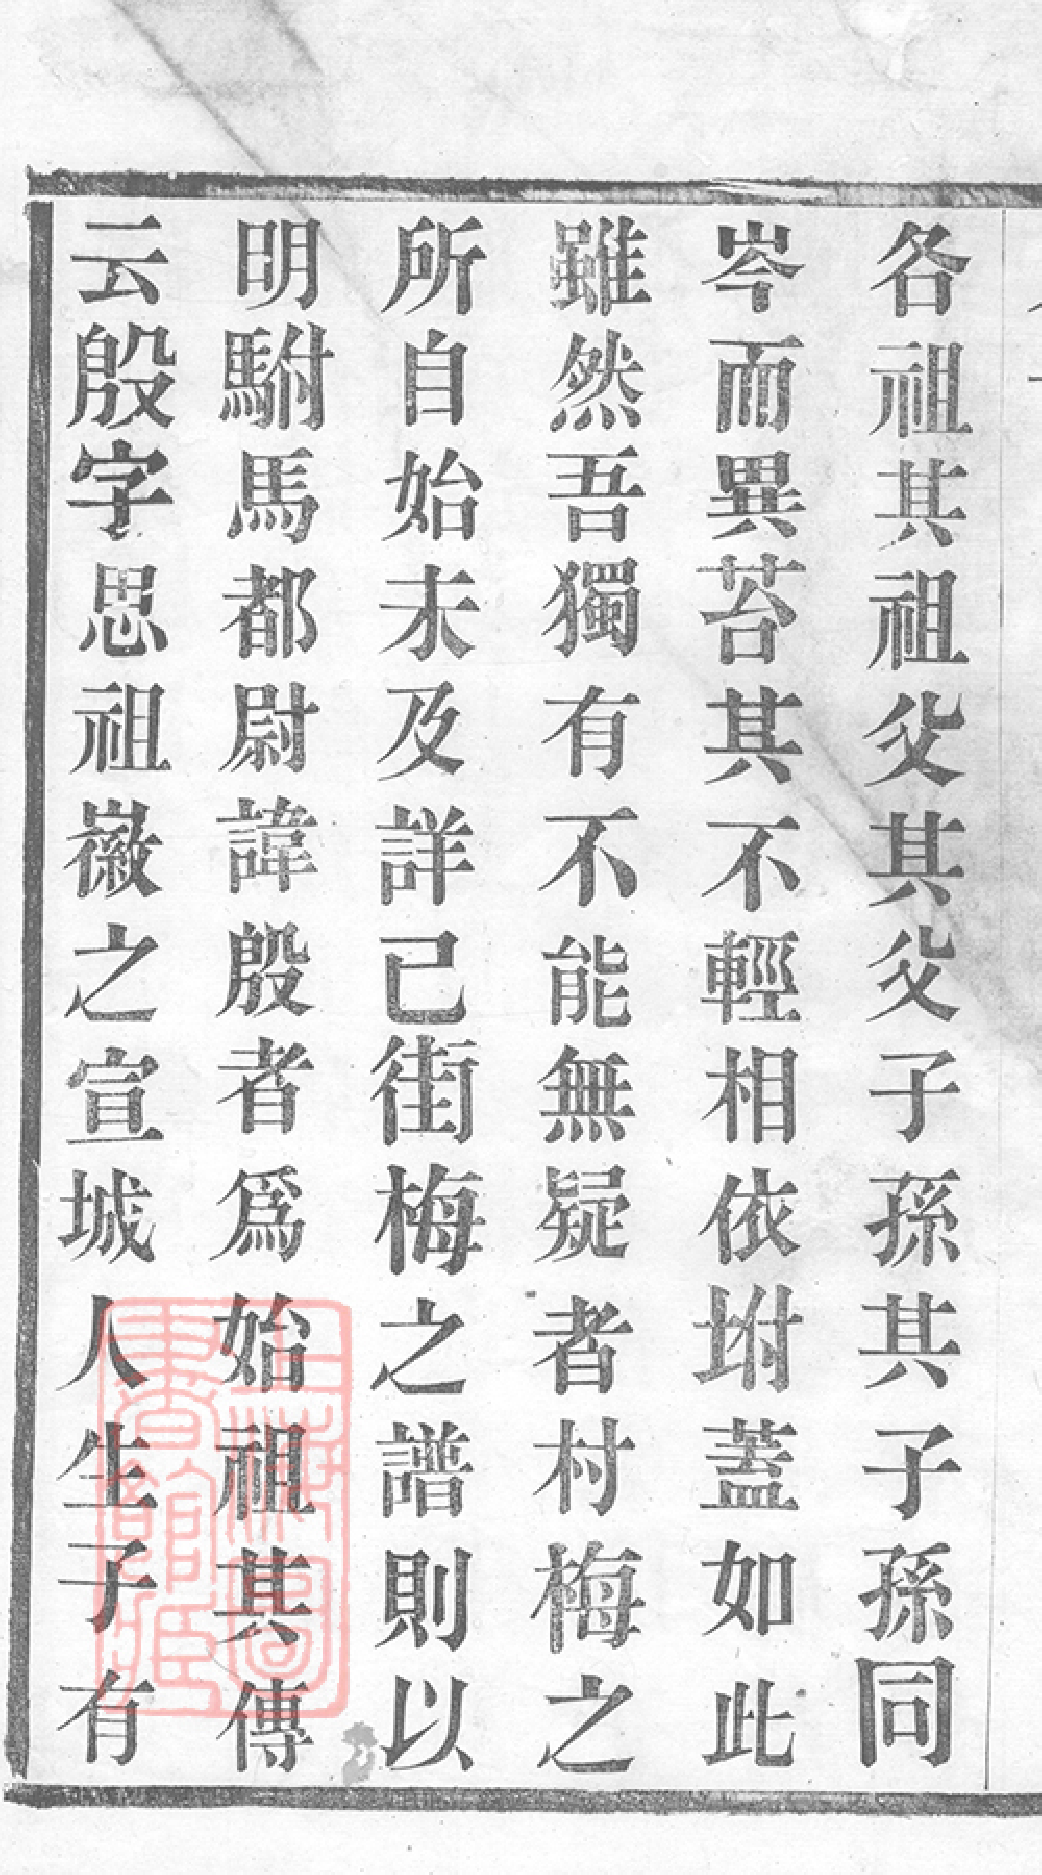 各祖其祖父其父子孫其子孫同
岑而異苔其不輕相依坿蓋如此
雖然吾獨有不能無疑者村梅之
所自始未及詳已街梅之譜則以
明駙馬都尉諱殷者爲始祖其傳
云殷字思祖徽之宣城人生子有
上海圖
書館藏